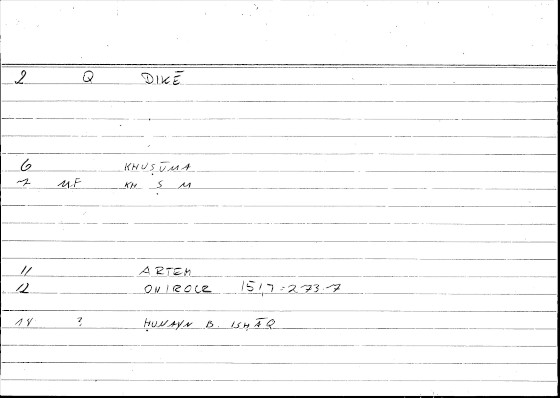 2 Q DIKĒ
6 KHUṢŪMA
7 MF KH Ṣ M
11 ARTEM
12 ONIROCR 15,7 = 273.7
14 ? ḤUNAYN B. ISḤĀQ